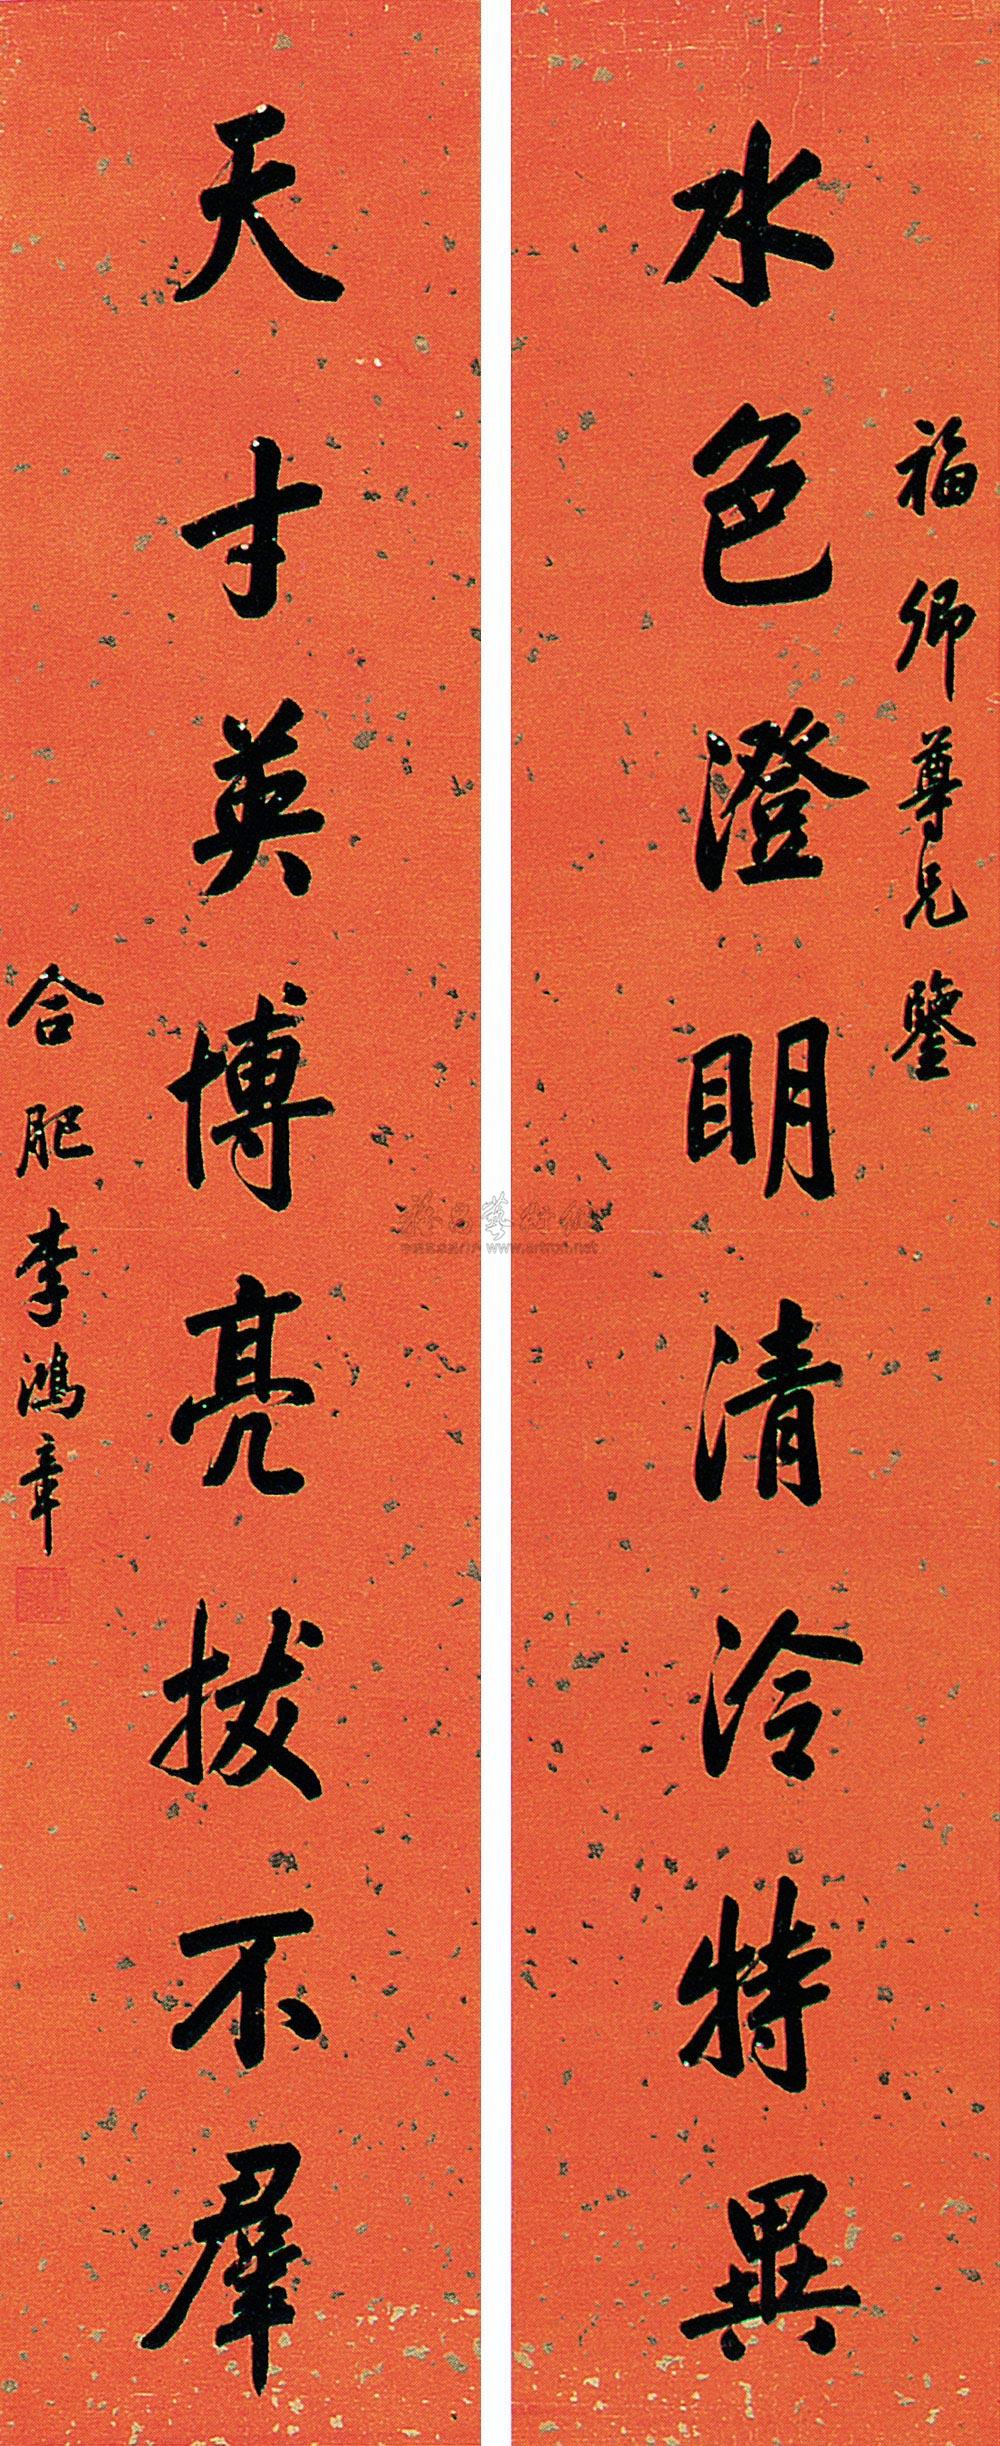 福卿尊兄鑒
水色澄明清泠特異
天才英博亮拔不羣
合肥李鴻章
www.artron.net